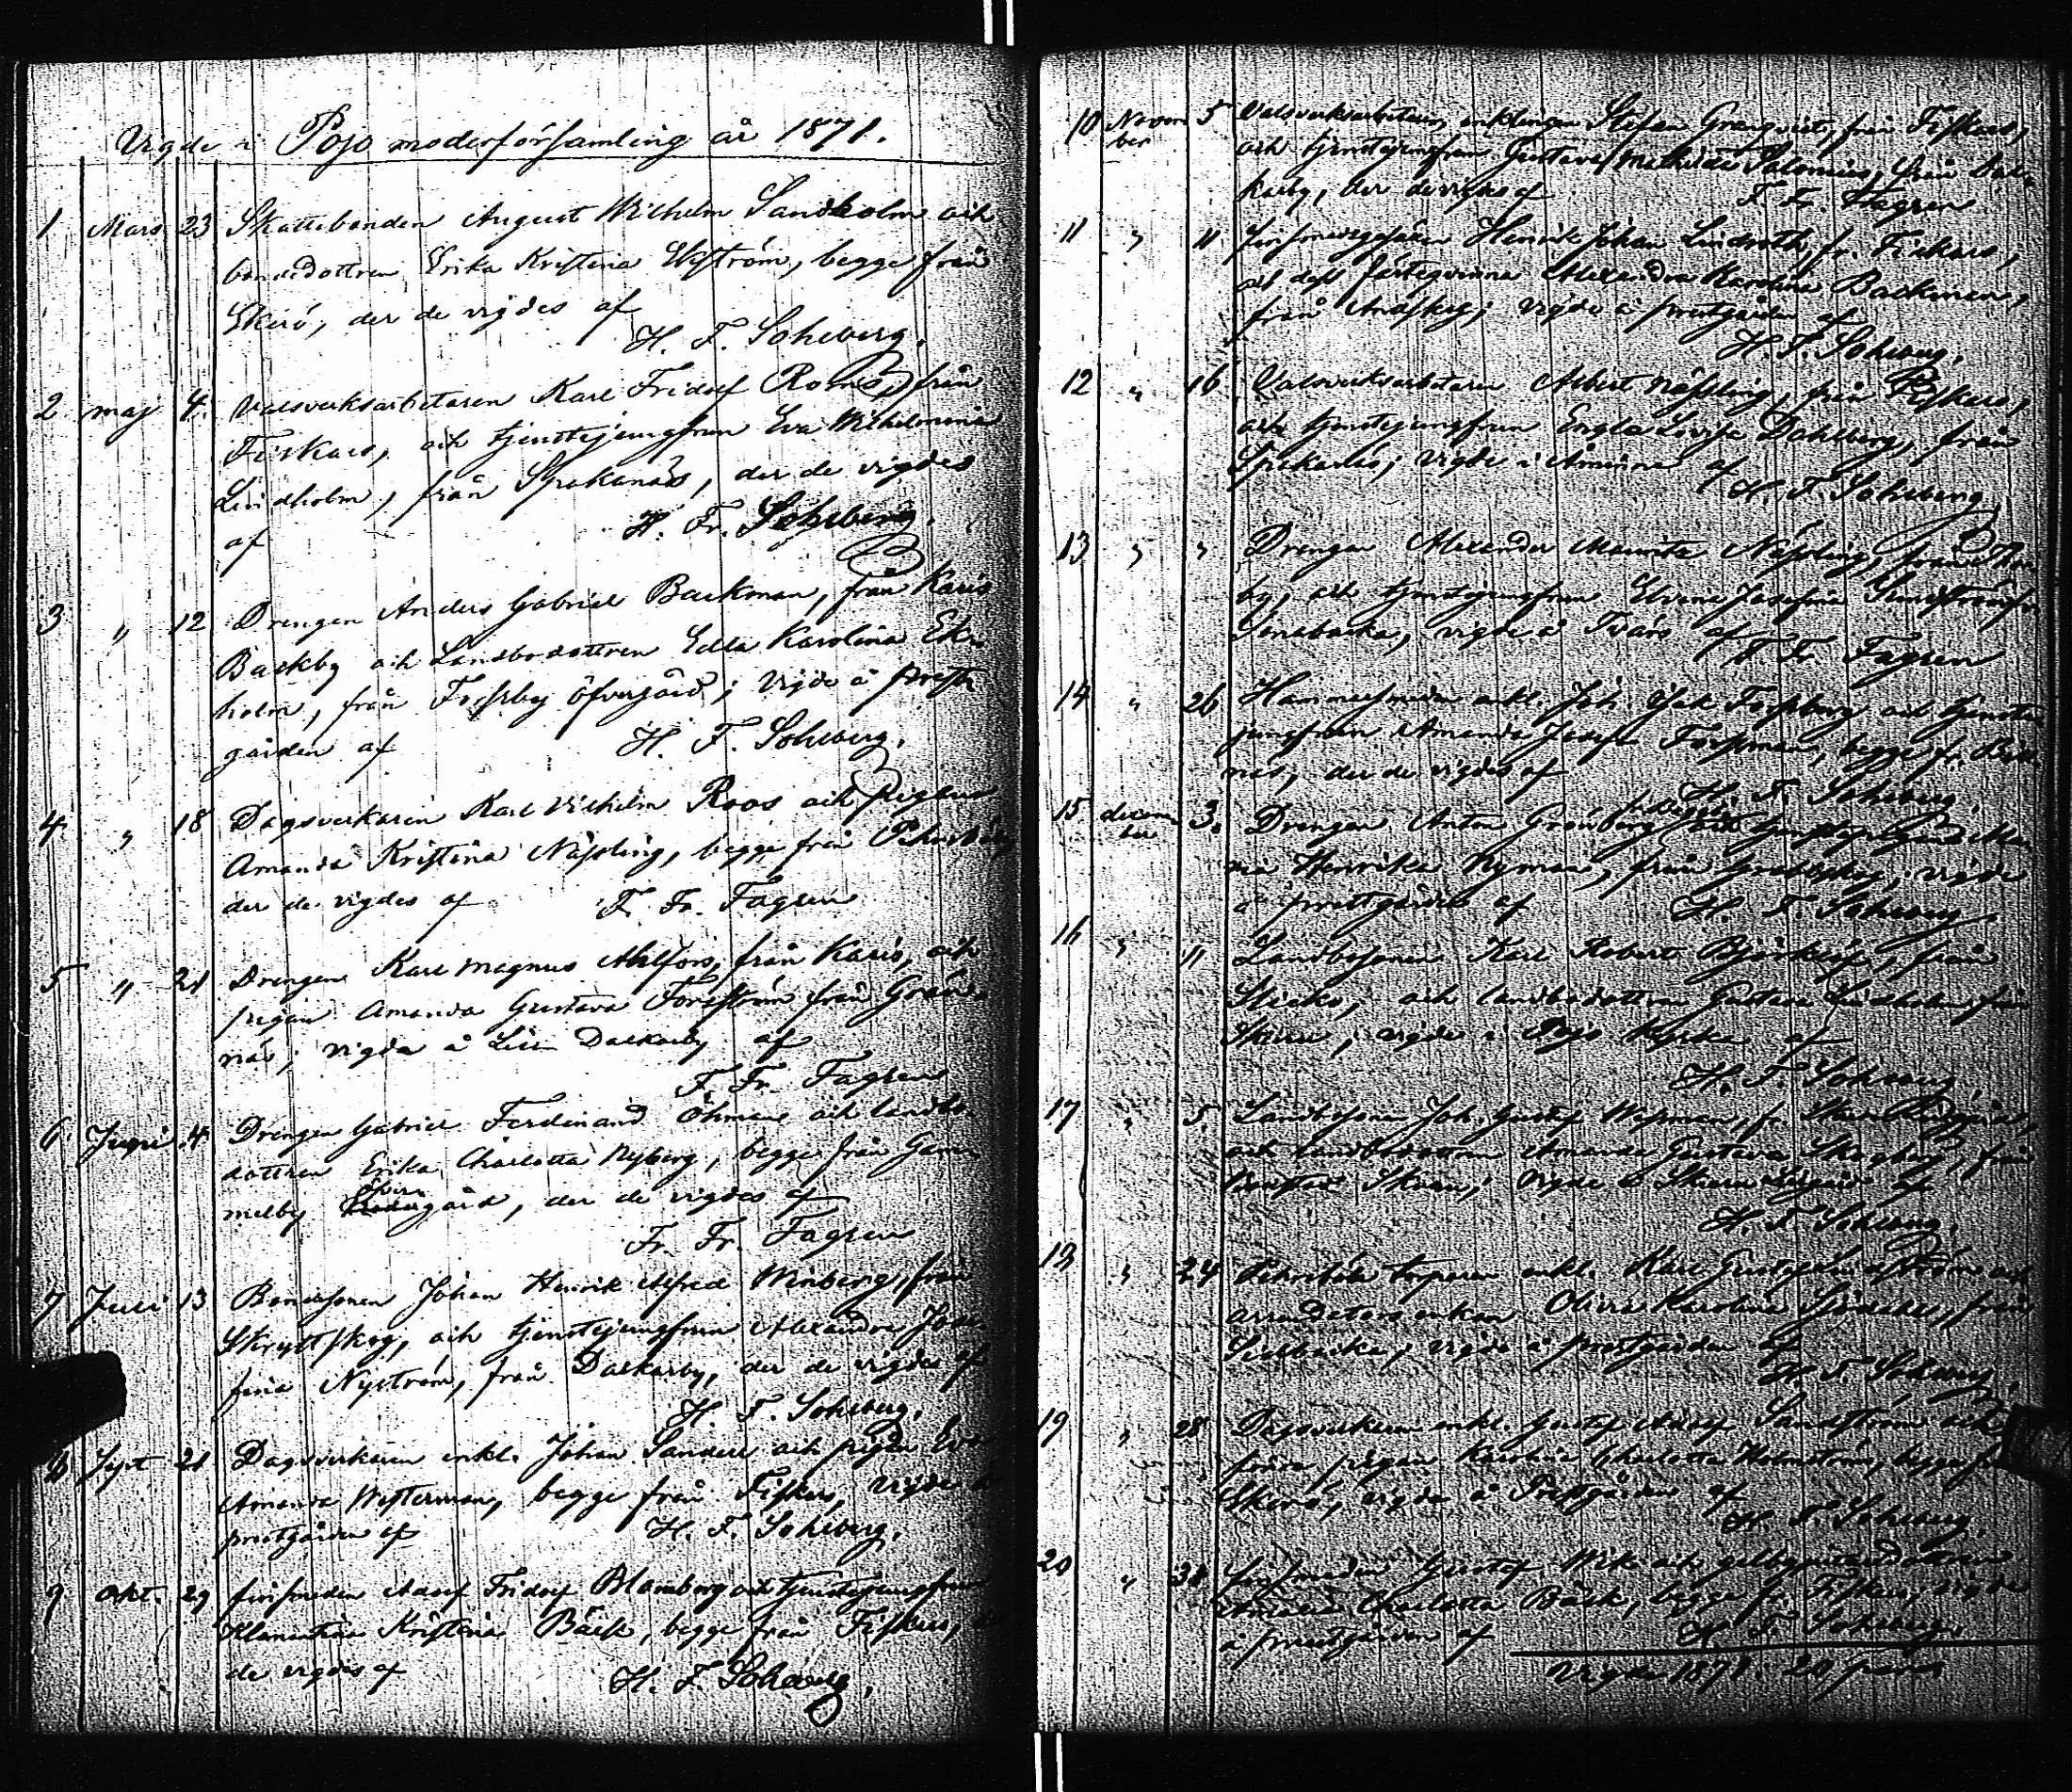 Vigde i Pojo moderförsamling år 1871.
1 Mars 23 Skattebonden August Wilhelm Sandholm och
bondedottren Erika Kristina Wiström, begge från
Ekerö, der de vigdes af
H. F. Sohlberg.
2 maj 4. Valsverksarbetaren Karl Fridolf Roms, från
Fiskars, och tjenstejungfrun Eva Wilhelmina
Lindholm, från Spakanäs, der de vigdes
af H. Fr. Sohlberg.
3 " 12 Drengen Anders Gabriel Backman, från Karis
Backby och Landbodottren Edla Karolina Ek-
holm, från Forsby öfvergård; vigde å prest-
gården af H. F. Sohlberg.
4 " 18 Dagsverkaren Karl Vilhelm Roos och pigan
Amanda Kristina Näsling, begge från
der de vigdes af F. Fr. Fagren
5 " 21 Drengen Karl Magnus Ahlfors, från Karis, och
pigan Amanda Gustava Forsström från Gränd-
näs; vigda å Dalkarby af
F. Fr. Fagren
6. Juni 4. Drengen Gabriel Ferdinand Öhman och landbo-
dottren Erika Charlotta Nyberg, begge från Gam-
melby öfvergård, der de vigdes af
Fr. Fr. Fagren
7 Juli 13 Bondesonen Johan Henrik Alfred Winberg, från
Skryttskog, och tjenstejungfrun Alexandra Jose-
fina Nyström, från Dalkarby, der de vigdes af
H. F. Sohlberg.
8 Sept 21 Dagsverkaren enkl. Johan Sandell och pigan Eva
Amanda Westerman, begge från Fiskars, vigde å
prestgården af H. F. Sohlberg.
9 Okt. 29 finsmeden Adolf Fridolf Blomberg och tjenstejungfrun
Klementina Kristina Bäck, begge från Fiskars,
de vigdes af H. F. Sohlberg.
10 Novem 5 Valsverksarbetaren, enklingen Stefan Granqvist, från Fiskars,
ber och tjenstejungfrun Gustava Mathilda Salonius, från Dal-
karby, der de vigdes af F. Fr. Fagren
11 " 11 Henrik Johan Lindroth, fr. Fiskars,
och dess fästeqvinna Alexandra Karolina Backman,
från Anäskog; vigde å prestgården af
H. F. Sohlberg.
12 " 16 Valsverksarbetaren Albert Näsling, från Fiskars,
och tjenstejungfrun Engla Lovisa Dahlberg, från
Spakanäs; vigde i Åminne af
H. F. Sohlberg
13 " " Drengen Alexander Mauritz Näsling, från
by, och tjenstejungfrun Josefina
vigde å Tvärs af
F. Fr. Fagren
14 " 26 Hammarsmeden enkl. Joh. Isak Forsberg och tjenste-
jungfrun Amanda Josefa Forsman, begge fr. Bill-
näs, der de vigdes af
H. F. Sohlberg.
15 decem 3. Drengen Anton Grönberg och Ma-
ber ria Henrika Nyman, från Grabbskog, vigde
å prestgården af H. F. Sohlberg.
16 " 11 Landbosonen Karl Robert Björklöf, från
och landbodottren Gustava Lindholm från
vigde i Pojo kyrka af
H. F. Sohlberg
17 " 5. Landbosonen Joh. Gustaf Wasman, fr.
och landbodottren Amanda Gustava Skogberg, från
vigde å af
H. F. Sohlberg.
18 " 24 torparen enkl. Karl Gustaf och
arrendators enkan Olivia Karolina från
vigde å prestgården af
H. F. Sohlberg.
19 " 28 Dagsverkaren enkl. Gustaf Adolf Sandström och
förra pigan Karolina Charlotta Holmström, begge fr.
Ekerö, vigde å Prestgården af
H. F. Sohlberg.
20 " 31 Gustaf Wik och
Amalia Charlotta Bäck, begge fr. Fiskars, vigde
å prestgården af H. F. Sohlberg.
Vigde 1871. 20 par